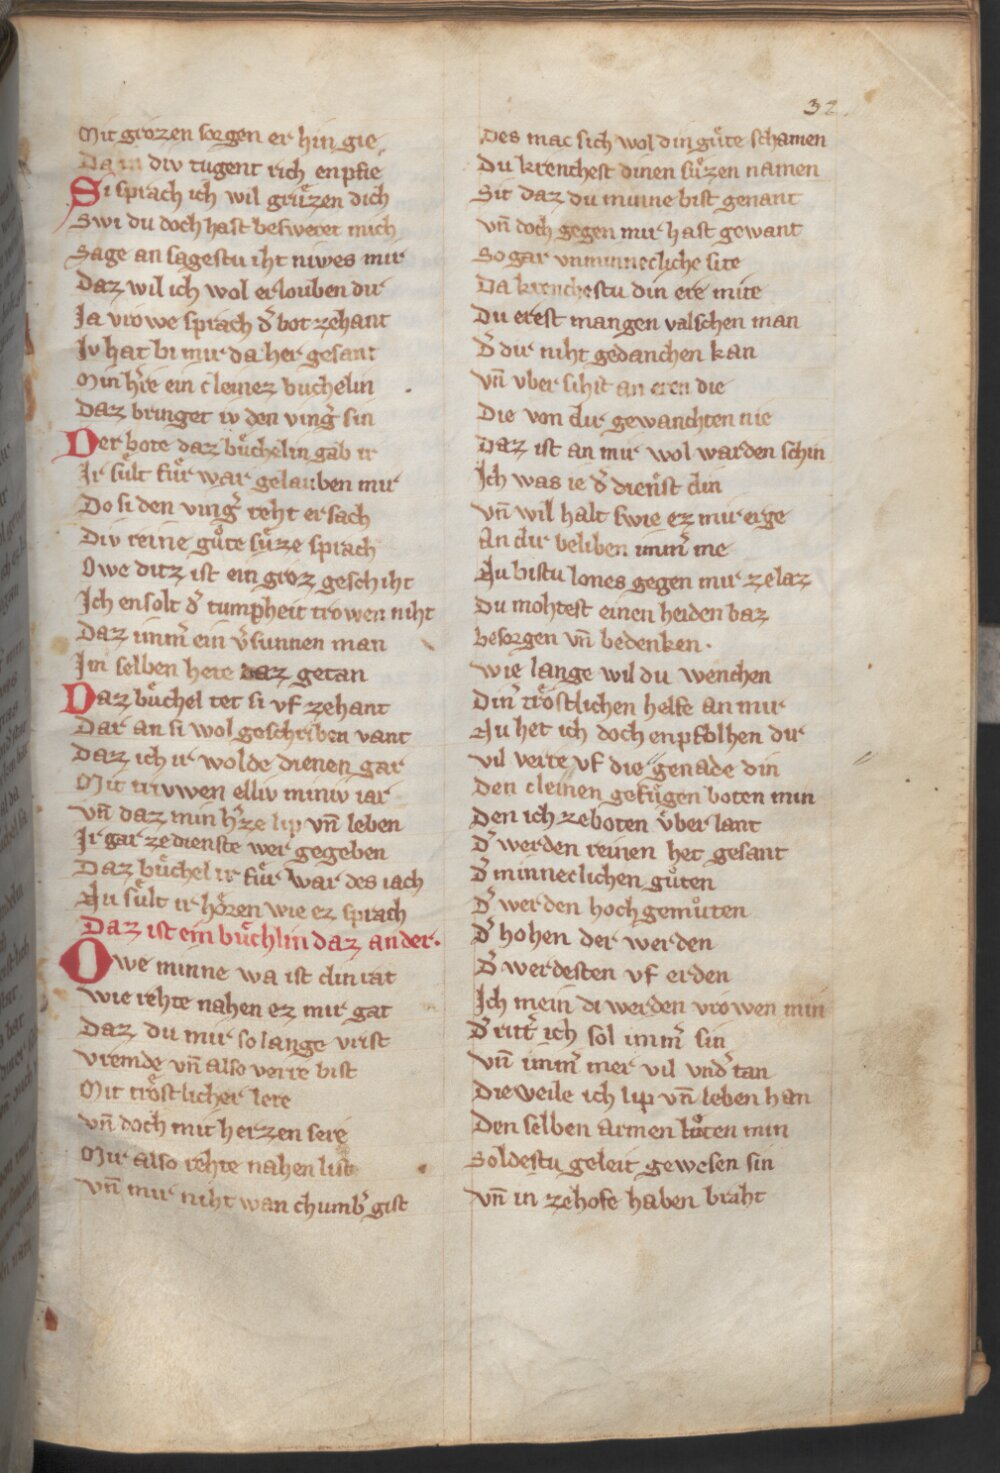 32
Mit grozen sorgen er hin gie
Da in div tugent rich enpfie
Si sprach ich wil gruͤzen dich
Swi du doch hast besweret mich
Sage an sagestu iht niwes mir
Daz wil ich wol erlouben dir
Ja vrowe sprach d̾ bot zehant
Jv hat bi mir da her gesant
Min h̾re ein cleinez buchelin
Daz bringet iv den ving̾ sin
Der bote daz buͤchelin gab ir
Jr suͤlt fuͤr war gelauben mir
Do si den ving̾ reht ersach
Div reine guͤte suͤze sprach
Owe ditz ist ein groz geschiht
Ich ensolt d̾ tumpheit trowen niht
Daz imm̾ ein v̾sunnen man
Im selben hete daz getan
Daz buͤchel tet si vf zehant
Dar an si wol geschriben vant
Daz ich ir wolde dienen gar
Mit trivwen elliv miniv iar
vn̄ daz min h̾ze lip vn̄ leben
Jr gar ze dienste wer gegeben
Daz buͤchel ir fuͤr war des iach
Nu suͤlt ir hoͤren wie ez sprach
Daz ist ein buͤchlin daz ander.
Owe minne wa ist din rat
wie rehte nahen ez mir gat
Daz du mir so lange vrist
vremde vn̄ also verre bist
Mit troͤstlicher lere
vn̄ doch mit herzen sere
Mir also rehte nahen list
vn̄ mir niht wan chumb̾ gist
Des mac sich wol din guͤte schamen
Du krenchest dinen suͤzen namen
Sit daz du minne bist genant
vn̄ doch gegen mir hast gewant
So gar vnminnecliche site
Da krenchestu din ere mite
Du erest mangen valschen man
D̾ dir niht gedanchen kan
vn̄ vber sihst an eren die
Die von dir gewanchten nie
Daz ist an mir wol warden schin
Ich was ie d̾ dienst din
vn̄ wil halt swie ez mir erge
An dir beliben imm̾ me
Nu bistu lones gegen mir ze laz
Du mohtest einen heiden baz
besorgen vn̄ bedenken.
wie lange wil du wenchen
Din̾ troͤstlichen helfe an mir
Nu het ich doch enpfolhen dir
vil verre vf die genade din
Den cleinen gefuͤgen boten min
Den ich ze boten vͤber lant
D̾ werden reinen het gesant
D̾ minneclichen guͦten
D̾ werden hochgemuͦten
D̾ hohen der werden
D̾ werdesten vf erden
Ich mein di werden vrowen min
D̾ ritt̾ ich sol imm̾ sin
vn̄ imm̾ mer vil vnd̾tan
Die weile ich lip vn̄ leben han
Den selben armen boten min
Soldestu geleit gewesen sin
vn̄ in ze hofe haben braht